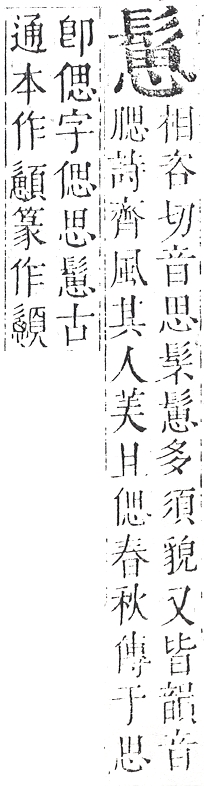 䰄
相咨切音思䯱䰄多須貌又皆韻音
腮詩齊風其人美且偲春秋傳于思
卽偲字偲思䰄古
通本作篆作